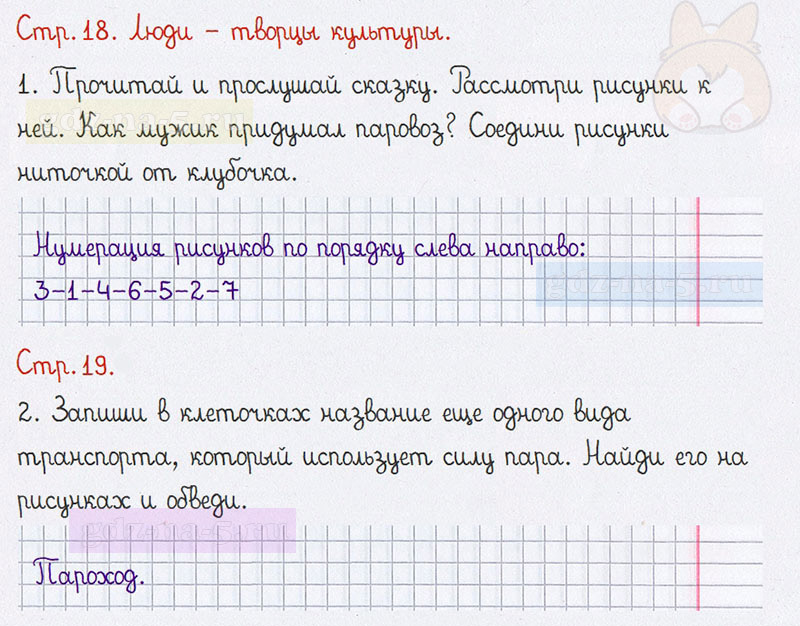 Стр. 18. Люди – творцы культуры.
1. Прочитай и прослушай сказку. Рассмотри рисунки к
ней. Как мужик придумал паровоз? Соедини рисунки
ниточкой от клубочка.
Нумерация рисунков по порядку слева направо:
3-1-4-6-5-2-7
Стр. 19.
2. Запиши в клеточках название еще одного вида
транспорта, который использует силу пара. Найди его на
рисунках и обведи.
Пароход.
gdz-na-5.ru
gdz-na-5.ru
gdz-na-5.ru